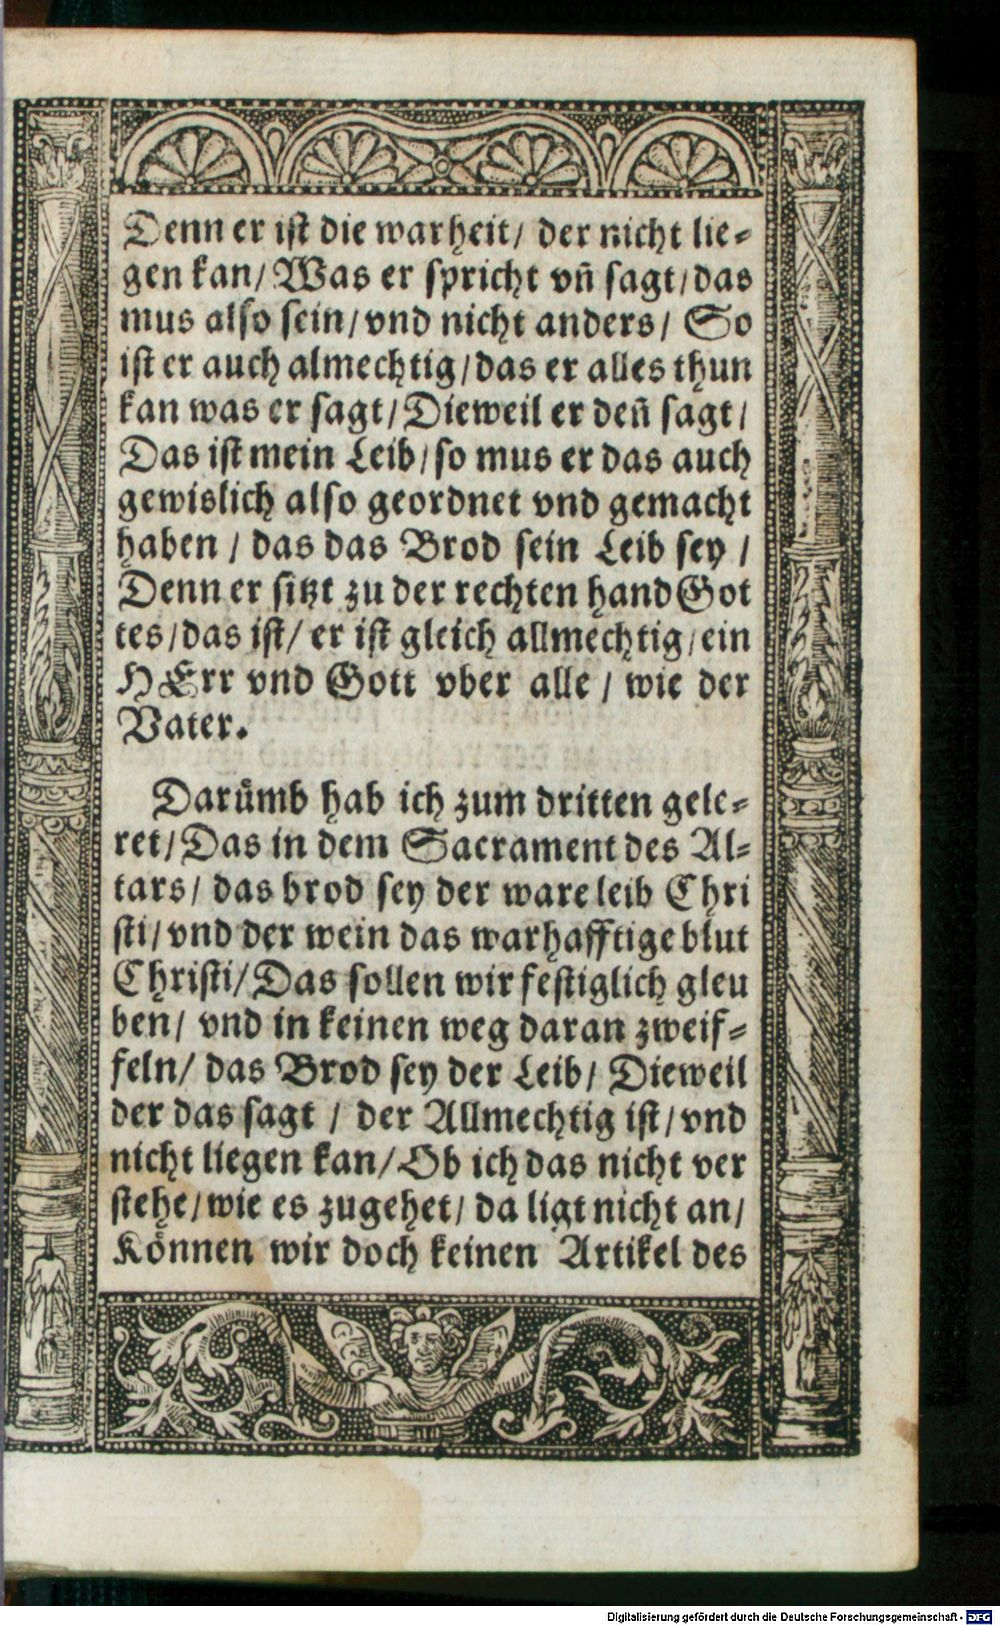 Denn er ist die warheit/ der nicht lie-
gen kan/ Was er spricht vn̄ sagt/ das
mus also sein/ vnd nicht anders/ So
ist er auch almechtig/ das er alles thun
kan was er sagt/ Dieweil er den̄ sagt/
Das ist mein Leib/ so mus er das auch
gewislich also geordnet vnd gemacht
haben / das das Brod sein Leib sey /
Denn er sitzt zu der rechten hand Got
tes/ das ist/ er ist gleich allmechtig/ ein
HErr vnd Gott vber alle / wie der
Vater.
Darůmb hab ich zum dritten gele-
ret/ Das in dem Sacrament des Al-
tars/ das brod sey der ware leib Chri
sti/ vnd der wein das warhafftige blut
Christi/ Das sollen wir festiglich gleu
ben/ vnd in keinen weg daran zweif-
feln/ das Brod sey der Leib/ Dieweil
der das sagt / der Allmechtig ist/ vnd
nicht liegen kan/ Ob ich das nicht ver
stehe/ wie es zugehet/ da ligt nicht an/
Können wir doch keinen Artikel des
Digitalisierung gefördert durch die Deutsche Forschungsgemeinschaft - DFG